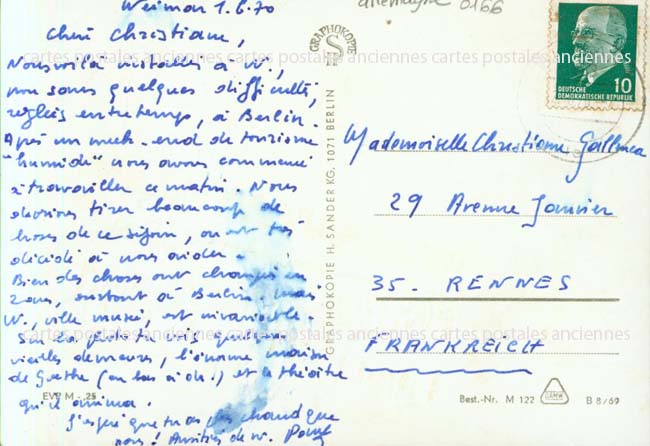 Weimar 1.6.70
allemagne 0166
Cheri Christiane,
Nous voilà installés à W.,
non sans quelques difficultés,
réglées entretemps, à Berlin.
Après un week-end de tourisme
"humide" nous avons commencé
à travailler ce matin. Nous
devrions tirer beaucoup de
choses de ce séjour, on est très
décidé à nous aider.
Bien des choses ont changé en
2 ans, surtout à Berlin, mais
W., ville musée, est invariable.
Sur la photo tu vois quelques
vieilles demeures, l'énorme maison
de Goethe (en bas à dr.!) et le théâtre
qu'il anima.
J'espère que tu as plus chaud que
nous! Amitiés de W.
GRAPHOKOPIE
GRAPHOKOPIE H. SANDER KG, 1071 BERLIN
10
DEUTSCHE
DEMOKRATISCHE REPUBLIK
Mademoiselle Christiane
29 Avenue Janvier
35. RENNES
FRANKREICH
EVP M -,25
Best.-Nr. M 122
B 8/69
cartes postales anciennes cartes postales anciennes cartes postales anciennes
cartes postales anciennes cartes postales anciennes cartes postales anciennes